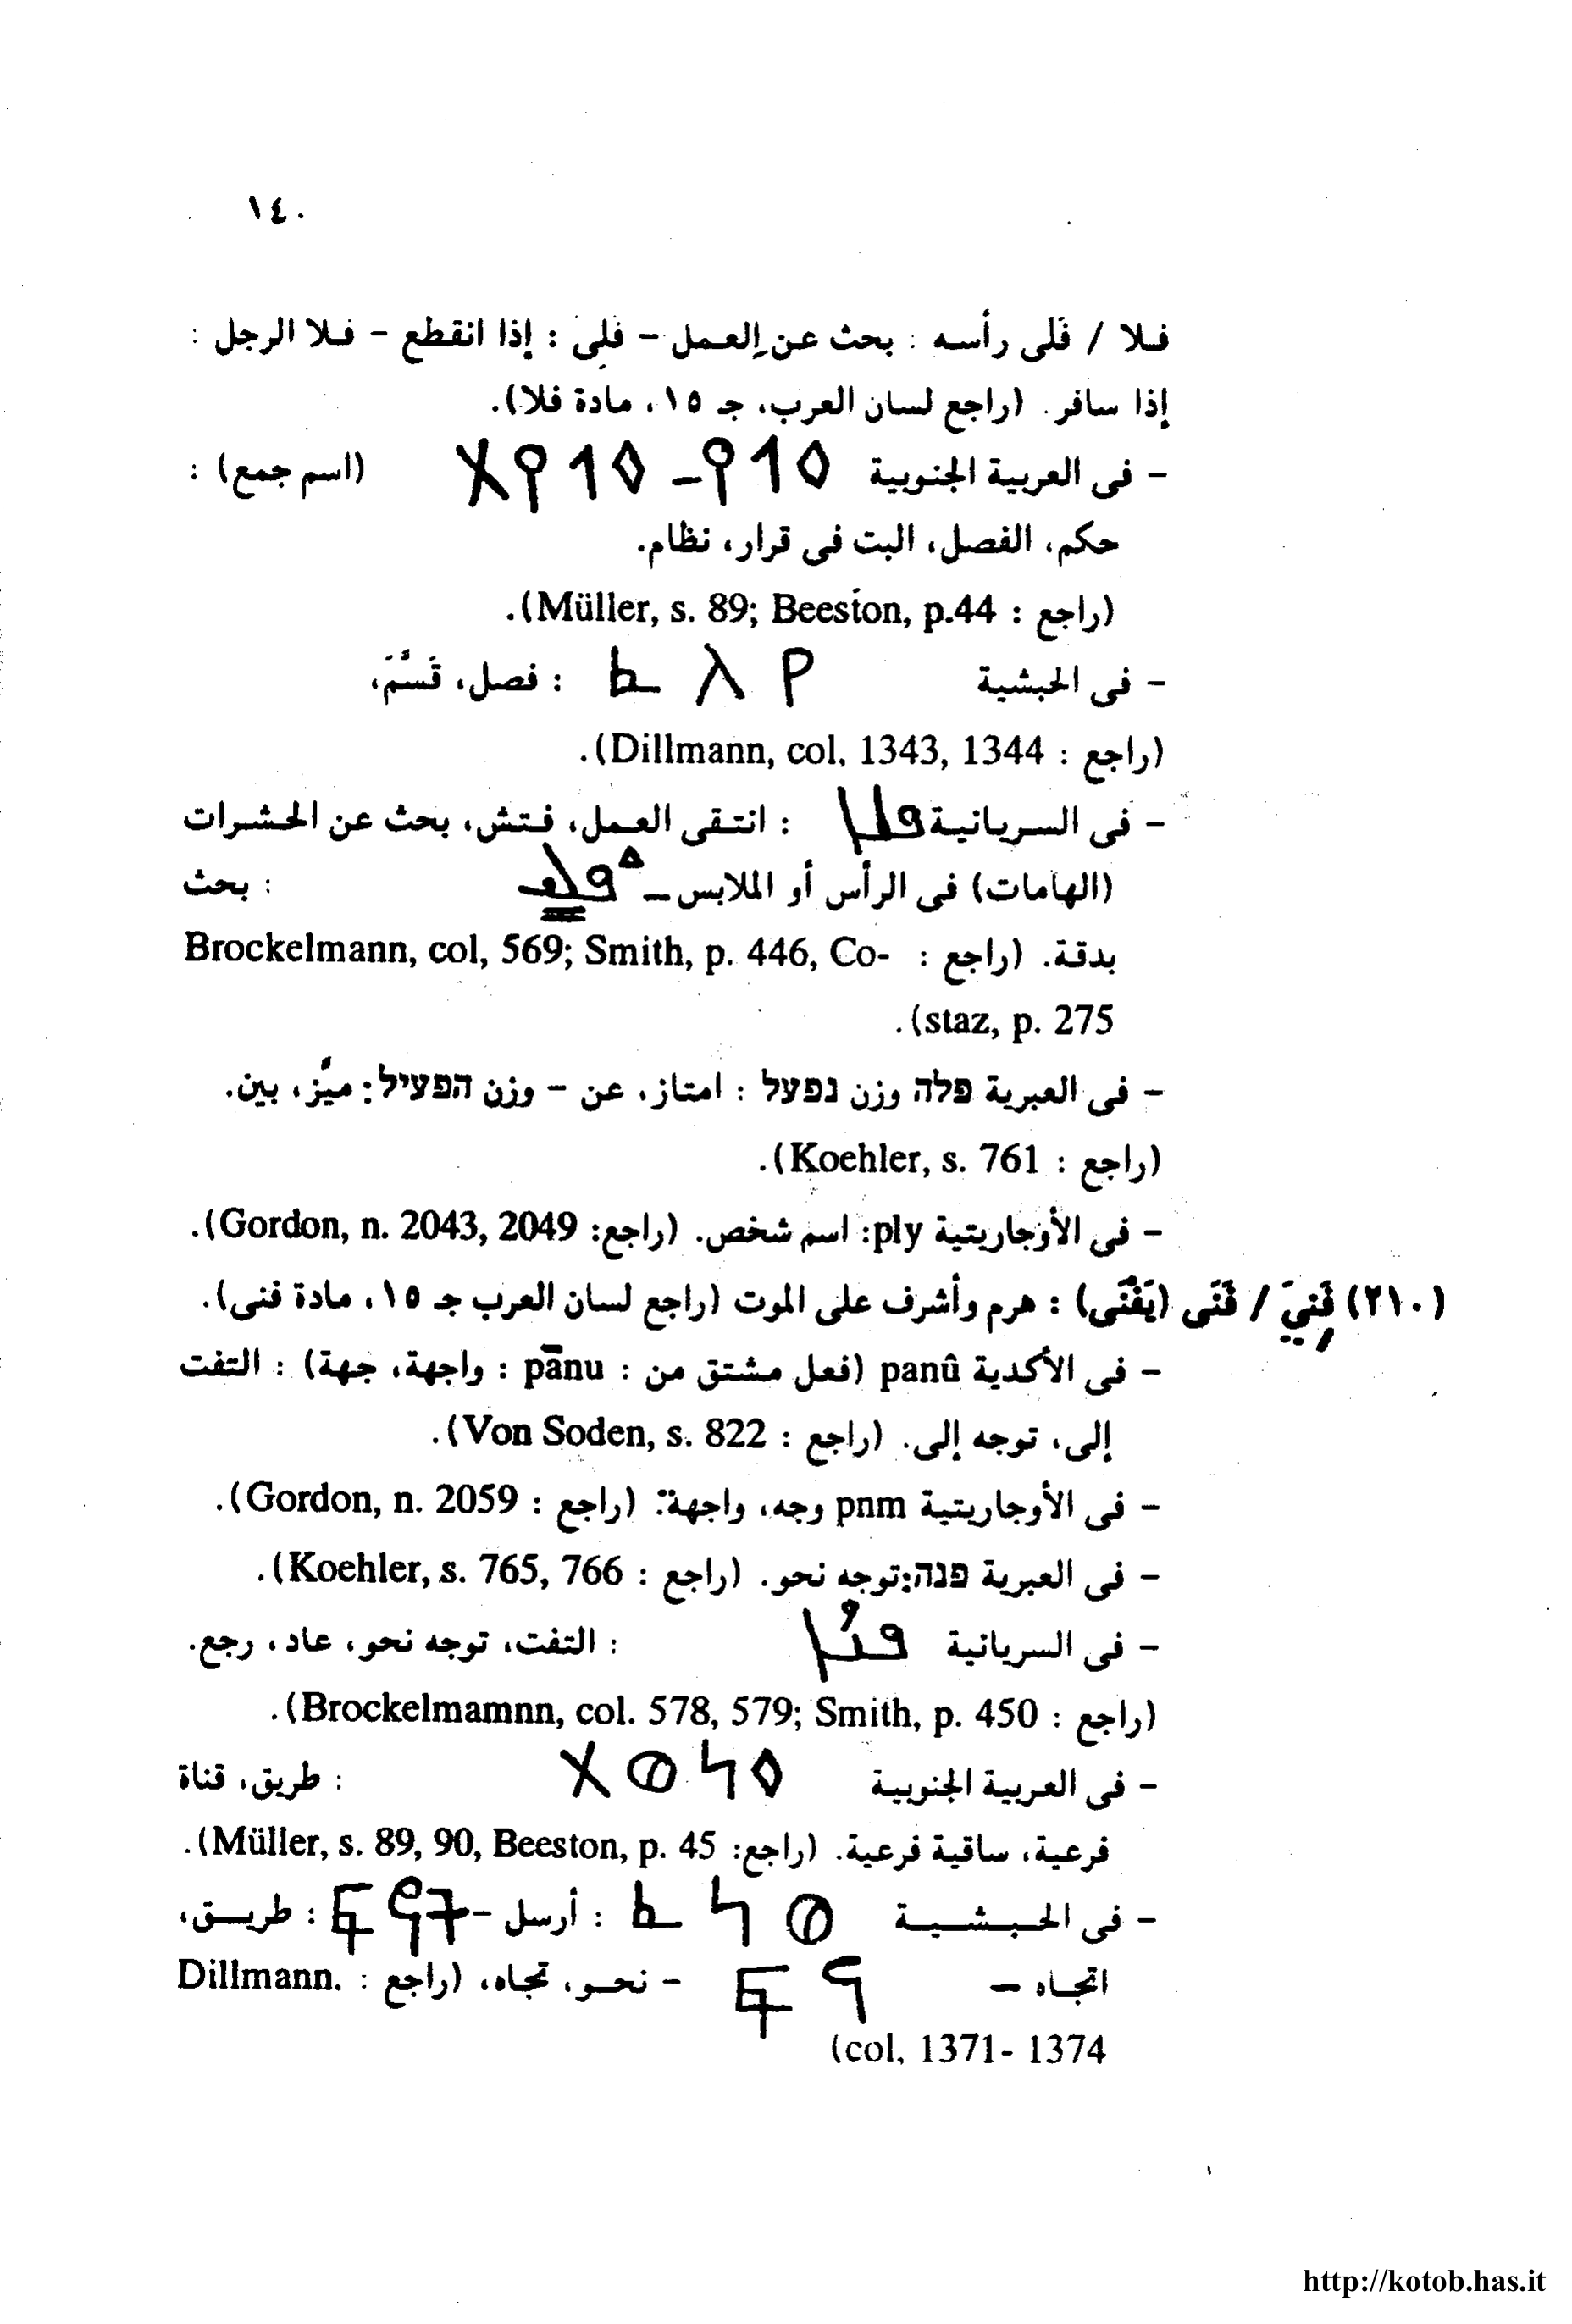 ١٤٠
فلا / فَلى رأسه : بحث عن العمل – فلى : إذا انقطع – فلا الرجل :
إذا سافر. (راجع لسان العرب، جـ ١٥، مادة فلا).
– فى العربية الجنوبية 𐩰𐩡𐩺 – 𐩰𐩡𐩺𐩩 (اسم جمع) :
حكم، الفصل، البت فى قرار، نظام.
(راجع : Müller, s. 89; Beeston, p.44).
– فى الحبشية : فصل، قَسَّمَ،
(راجع : Dillmann, col, 1343, 1344).
– فى السريانية ܦܠܐ : انتقى العمل، فتش، بحث عن الحشرات
(الهامات) فى الرأس أو الملابس – : بحث
بدقة. (راجع : Brockelmann, col, 569; Smith, p. 446, Co-
staz, p. 275).
– فى العبرية פלה وزن נפעל : امتاز، عن – وزن הפעיל: ميَّز، بين.
(راجع : Koehler, s. 761).
– فى الأوجاريتية ply: اسم شخص. (راجع: Gordon, n. 2043, 2049).
(٢١٠) فَنِيَ / فَنَى (يَفْنَى) : هرم وأشرف على الموت (راجع لسان العرب جـ ١٥، مادة فنى).
– فى الأكدية panû (فعل مشتق من : pānu : واجهة، جهة) : التفت
إلى، توجه إلى. (راجع : Von Soden, s. 822).
– فى الأوجاريتية pnm وجه، واجهة: (راجع : Gordon, n. 2059).
– فى العبرية פנה: توجه نحو. (راجع : Koehler, s. 765, 766).
– فى السريانية ܦܢܐ : التفت، توجه نحو، عاد، رجع.
(راجع : Brockelmamnn, col. 578, 579; Smith, p. 450).
– فى العربية الجنوبية 𐩰𐩬𐩥𐩩 : طريق، قناة
فرعية، ساقية فرعية. (راجع: Müller, s. 89, 90, Beeston, p. 45).
– فى الحبشية : أرسل – : طريق،
اتجاه – – نحو، تجاه، (راجع : Dillmann.
col, 1371- 1374)
http://kotob.has.it